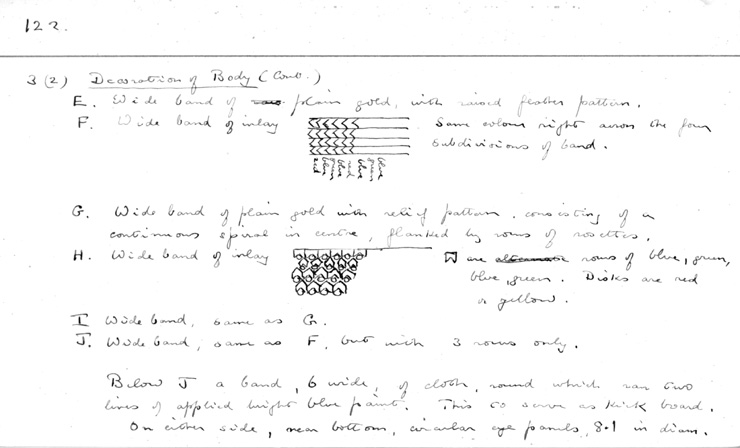 122.
3 (2) Decoration of Body (Cont.)
E. Wide band of plain gold, with raised feather pattern.
F. Wide band of inlay Same colour right across the four
subdivisions of band.
G. Wide band of plain gold with relief pattern, consisting of a
continuous spiral in centre, flanked by rows of rosettes.
H. Wide band of inlay are rows of blue, green,
blue, green. Disks are red
or yellow.
I Wide band, same as G.
J. Wide band, same as F, but with 3 rows only.
Below J a band, 6 wide, of cloth, round which ran two
lines of applied bright blue paint. This to serve as kick board.
On either side, near bottom, circular eye panels, 8.1 in diam.